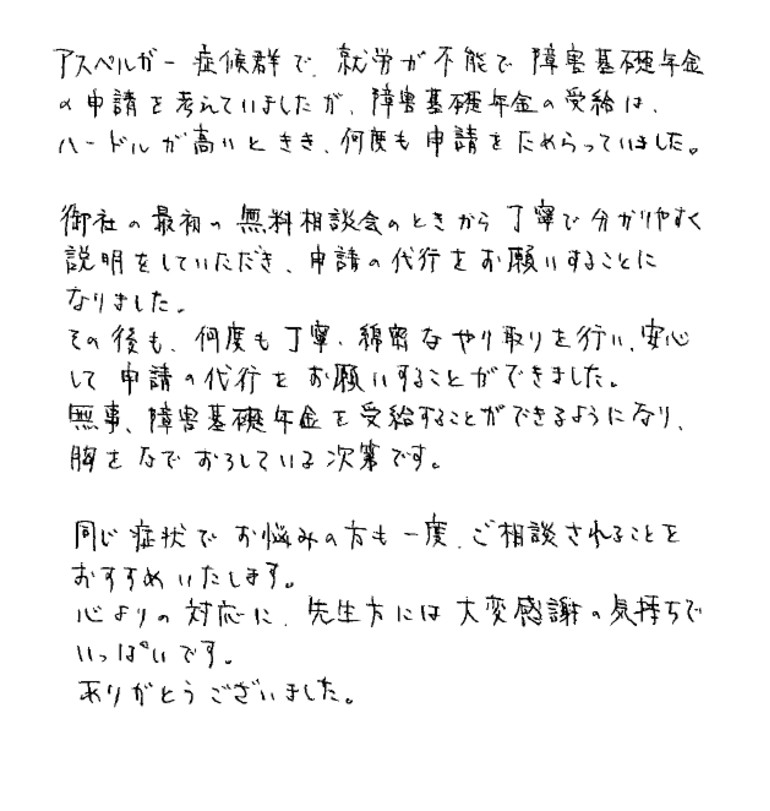 アスペルガー症候群で、就労が不能で障害基礎年金
の申請を考えていましたが、障害基礎年金の受給は、
ハードルが高いときき, 何度も申請をためらっていました。
御社の最初の無料相談会のときから丁寧で分かりやすく
説明をしていただき、申請の代行をお願いすることに
なりました。
その後も、何度も丁寧・綿密なやり取りを行い、安心
して申請の代行をお願いすることができました。
無事、障害基礎年金を受給することができるようになり、
胸をなでおろしている次第です。
同じ症状でお悩みの方も一度、ご相談されることを
おすすめいたします。
心よりの対応に、先生方には大変感謝の気持ちで
いっぱいです。
ありがとうございました。